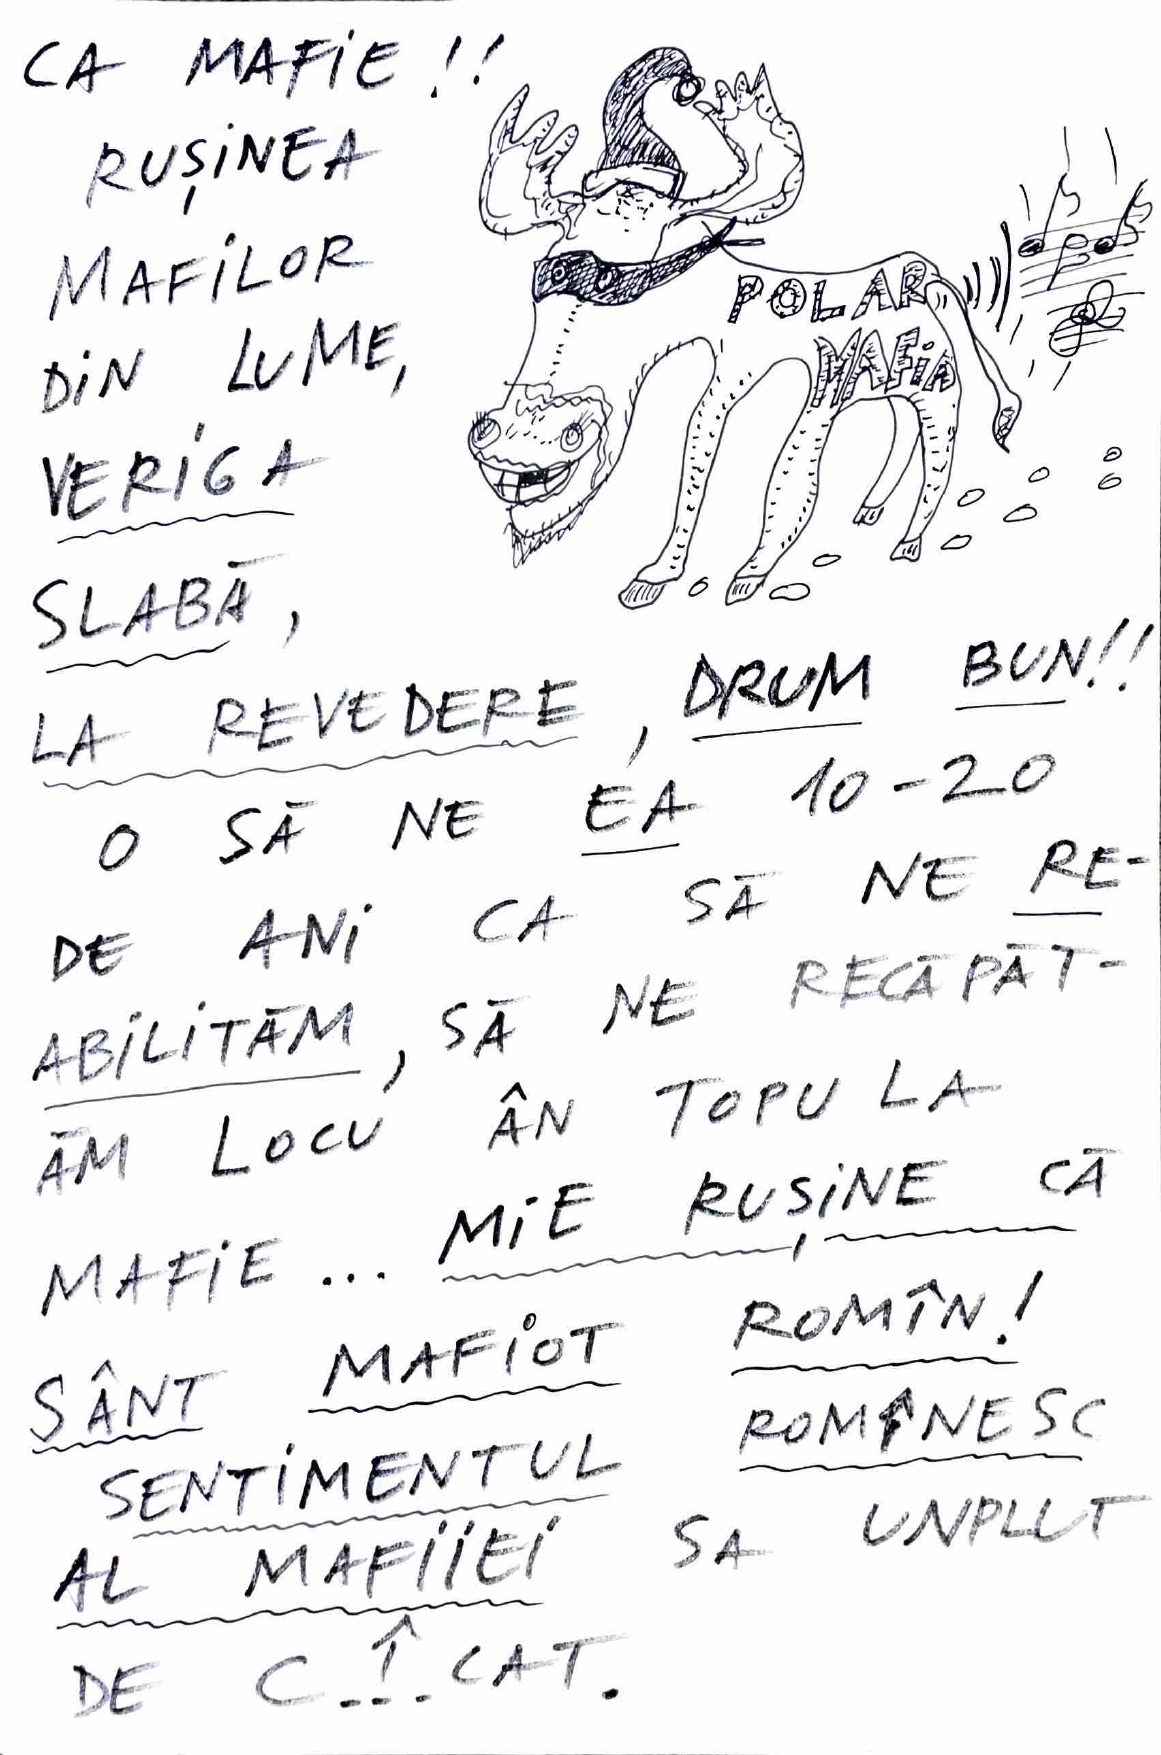 CA MAFiE !!
RUȘiNEA
MAFiLOR
DiN LUME,
VERiGA
SLABĂ,
POLAR
MAFiA
LA REVEDERE, DRUM BUN!!
O SĂ NE EA 10-20
DE ANi CA SĂ NE RE-
ABiLiTĂM, SĂ NE RECĂPĂT-
ĂM LOCU ÂN TOPU LA
MAFiE... MiE RUȘiNE CĂ
SÂNT MAFiOT ROMÎN!
SENTiMENTUL ROMÎNESC
AL MAFiiEi SA UNPLUT
DE C_Î_CAT.